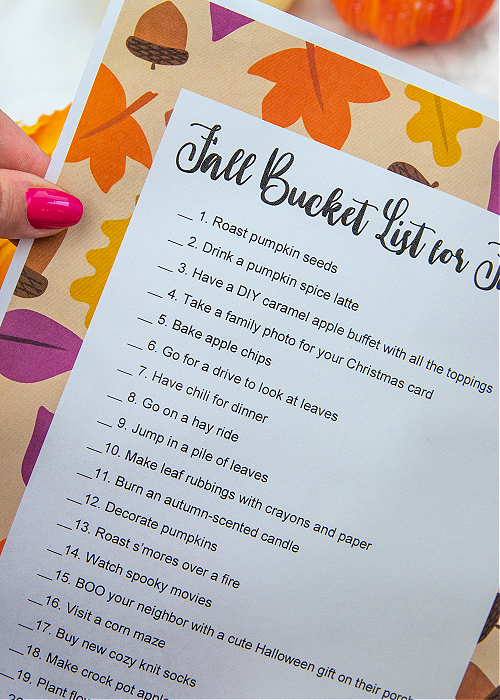 Fall Bucket List for
__ 1. Roast pumpkin seeds
__ 2. Drink a pumpkin spice latte
__ 3. Have a DIY caramel apple buffet with all the toppings
__ 4. Take a family photo for your Christmas card
__ 5. Bake apple chips
__ 6. Go for a drive to look at leaves
__ 7. Have chili for dinner
__ 8. Go on a hay ride
__ 9. Jump in a pile of leaves
__ 10. Make leaf rubbings with crayons and paper
__ 11. Burn an autumn-scented candle
__ 12. Decorate pumpkins
__ 13. Roast s'mores over a fire
__ 14. Watch spooky movies
__ 15. BOO your neighbor with a cute Halloween gift on their porch
__ 16. Visit a corn maze
__ 17. Buy new cozy knit socks
__ 18. Make crock pot
__ 19. Plant